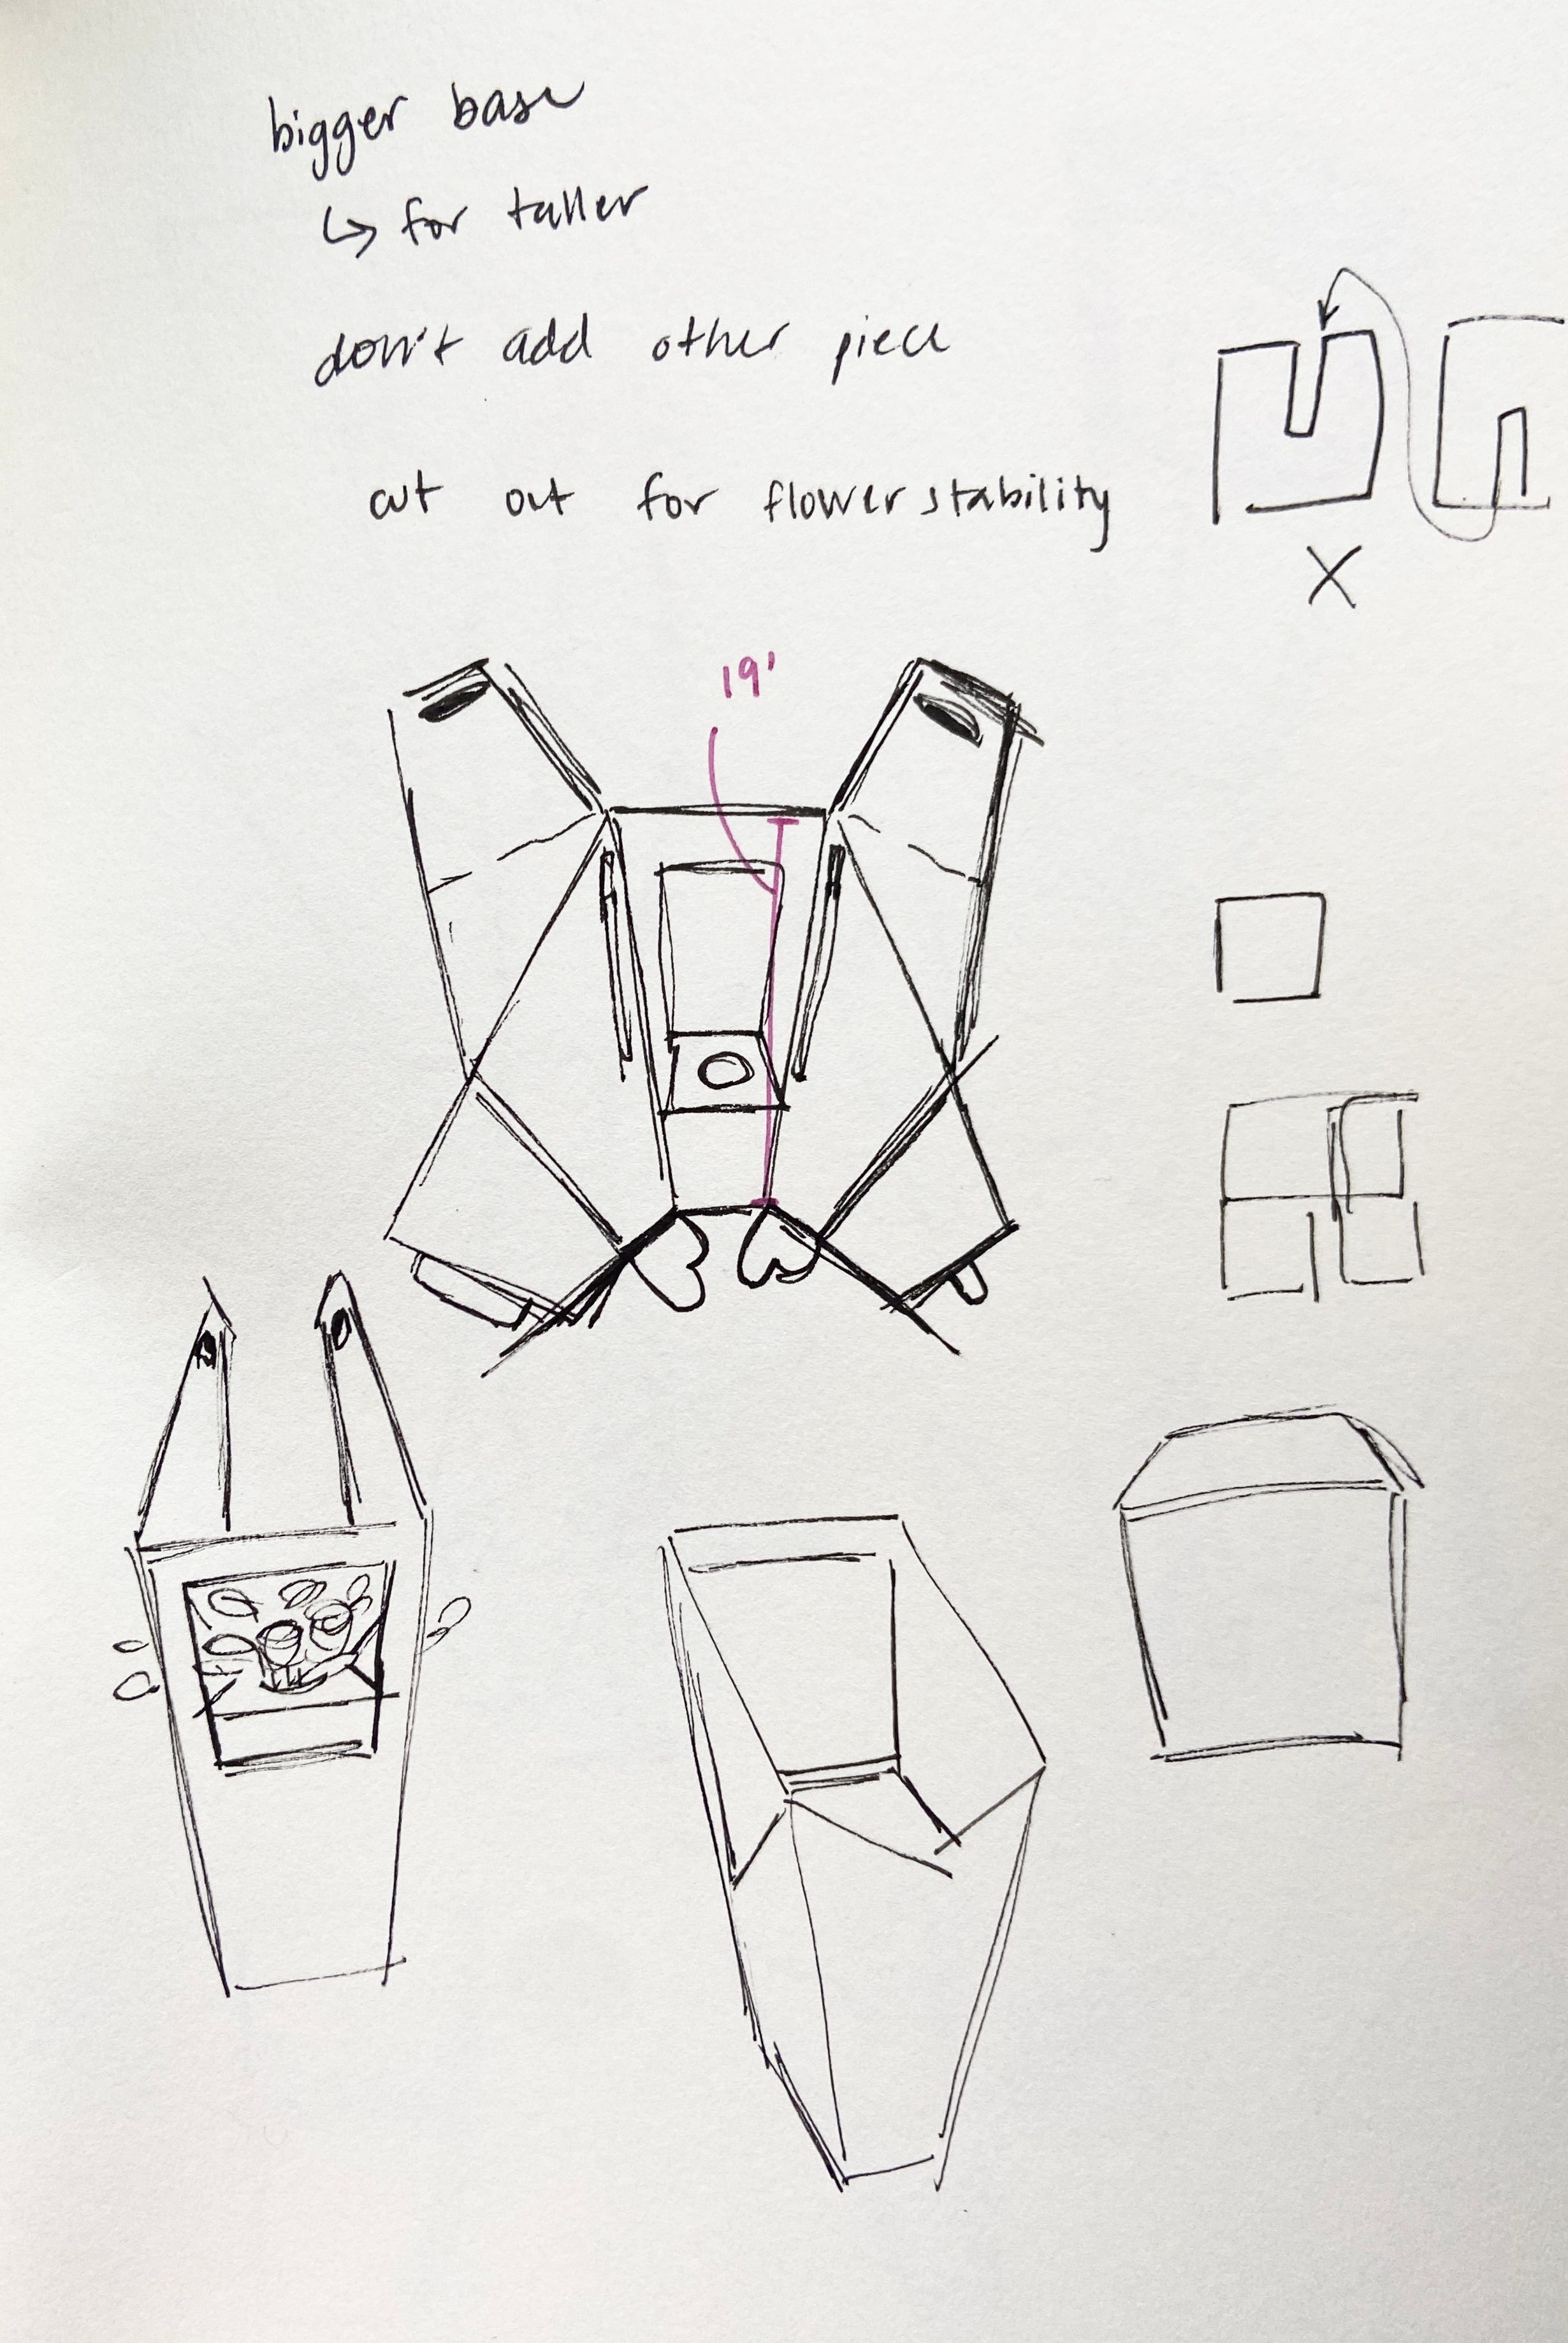 bigger base
↳ for taller
don't add other piece
cut out for flower stability
X
19'